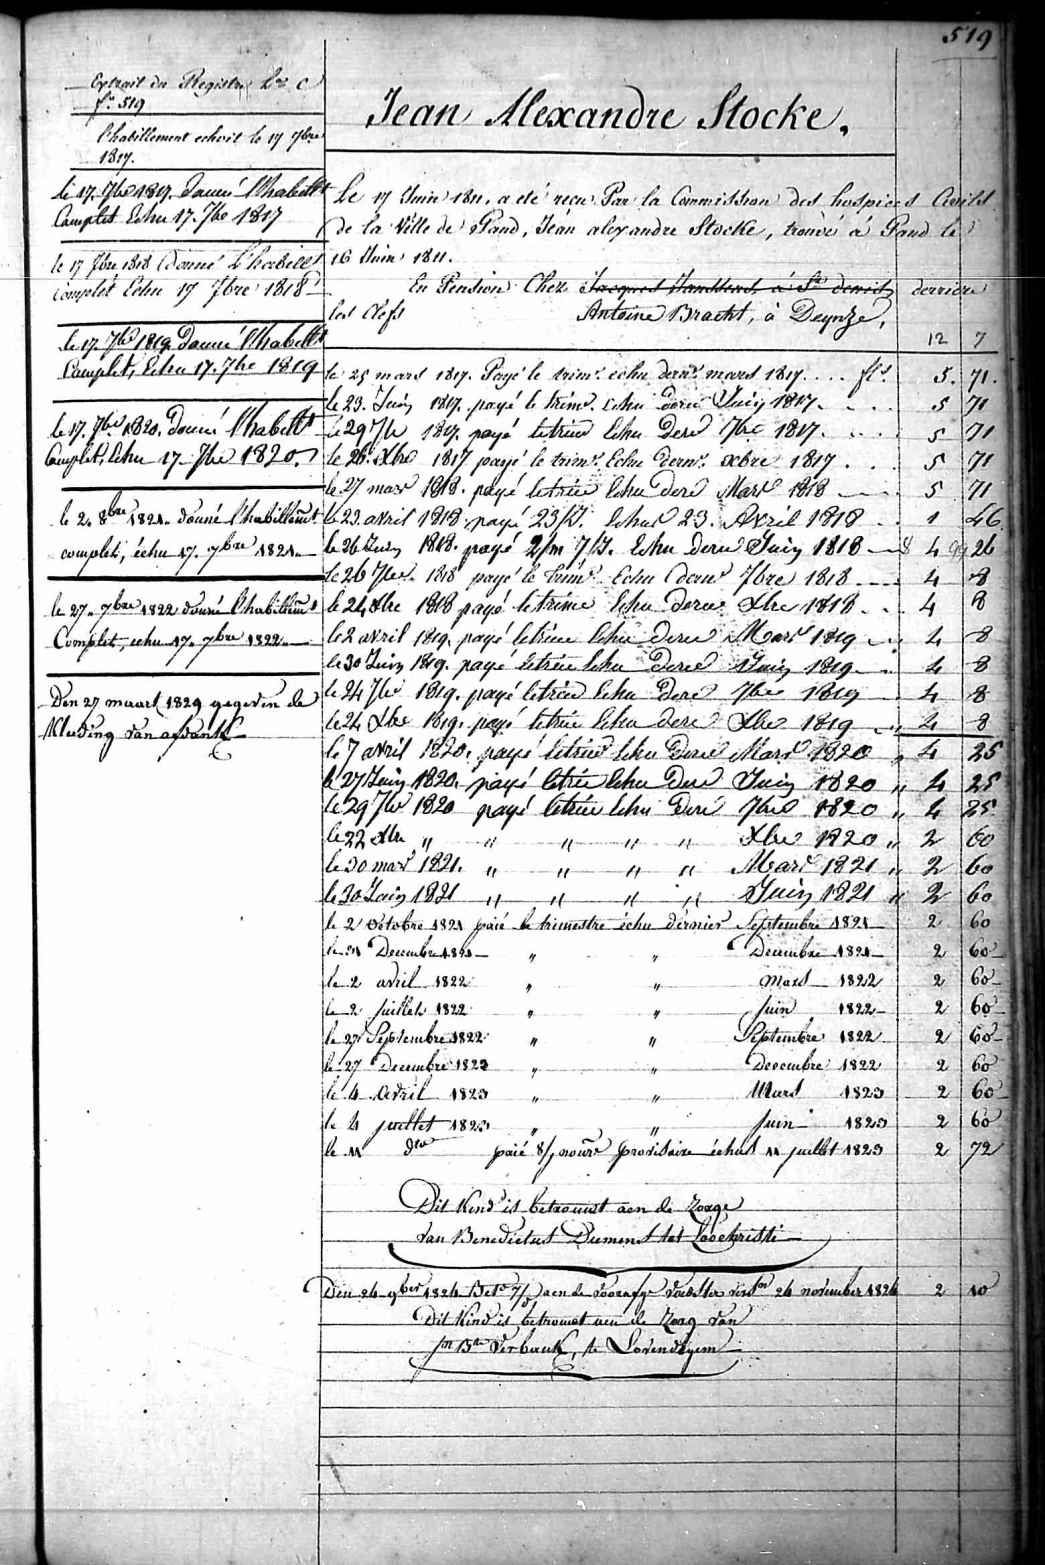 519
Extrait du Registre C
f° 519
l'habillement echoit le 17 7bre
1817.
le 17. 7bre 1817. donné l'habillt
Complet Echu 17. 7bre 1817
le 17 7bre 1818 donné l'habillt
complet Echu 17 7bre 1818
le 17. 7bre 1819 donné l'habillt
Complet, Echu 17. 7bre 1819
le 17. 7bre 1820. donné l'habillt
Complet, Echu 17. 7bre 1820.
le 2. 8bre 1821. donné l'habillemt
complet, échu 17. 7bre 1821.
le 27. 7bre 1822 donné l'habillemt
Complet, echu 17. 7bre 1822.
Den 27 maart 1824 gegeven de
Kleeding van afdank
Jean Alexandre Stocke.
Le 17 Juin 1811. a été recu Par la Commission des hospices Civils
de la Ville de Gand, Jean alexandre Stocke, trouvé à Gand le
16 Juin 1811.
En Pension Chez Jacques à St denis, derriere
les Clefs Antoine Bracht, à Deynze,
12 7
le 25 mars 1817. Payé le trimr. echu dernr. mars 1817. . . . fls. 5. 71.
le 23. Juin 1817. payé le trimr. echu derner Juin 1817. . . . 5 71
le 29 7bre 1817. payé letrim Echu Derer 7bre 1817. . . . 5 71
le 28. Xbre 1817 payé le trimr. Echu dernr. xbre 1817 . . . 5 71
le 27 mars 1818. payé letrim Echu derer Mars 1818 5 71
le 23. avril 1818 payé 23/J. Echus 23. Avril 1818 1 46
le 26 Juin 1818. payé 2/m 7/J. Echu derer Juin 1818 4 26
le 26 7bre. 1818 payé le trimr Echu dernr 7bre 1818 4 8
le 24 Xbre 1818 payé letrime Echu derer Xbre 1818 . . 4 8
le 2 avril 1819. payé letrim Echu derer Mars 1819 4 8
le 30 Juin 1819. payé letrim Echu Derer Juin 1819 4 8
le 24 7bre 1819. payé letrim Echu Derer 7bre 1819 4 8
le 24 Xbre 1819. payé letrim Echu derer Xbre 1819 " 4 8
le 7 avril 1820. payé letrim Echu Derer Mars 1820 " 4 25
le 27 Juin 1820. payé letrim Echu Derer Juin 1820 " 4 25
le 29 7bre 1820 payé letrim Echu Derer 7bre 1820 " 4 25.
le 22 Xbre " " " " " Xbre 1820 " 2 60
le 30 mars 1821. " " " " Mars 1821 " 2 60
le 30 Juin 1821 " " " " Juin 1821 " 2 60
le 2 octobre 1821 paié le trimestre échu dernier Septembre 1821 2 60
le 31 Decembre 1821 " " Decembre 1821 2 60
le 2 avril 1822 " " mars 1822 2 60
le 2 juillet 1822 " " juin 1822 2 60
le 27 Septembre 1822 " " Septembre 1822 2 60
le 27 Decembre 1823 " " Decembre 1822 2 60
le 4 Avril 1823 " " Mars 1823 2 60
le 4 juillet 1823 " " juin 1823 2 60
le 11 dto paié 8/j nourre provisoire échus 11 juillet 1823 2 72
Dit Kind is betrouwt aen de zorge
van Benedictus Diemens tot Loochristi
Den 24 9ber 1824 Bet. aen de voorafge voedster 24 november 1824 2 10
Dit Kind is betrouwt aen de Zorg van
Verbauk, te Lovendegem